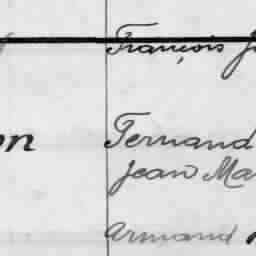 François
on Fernand
Jean Ma
Armand